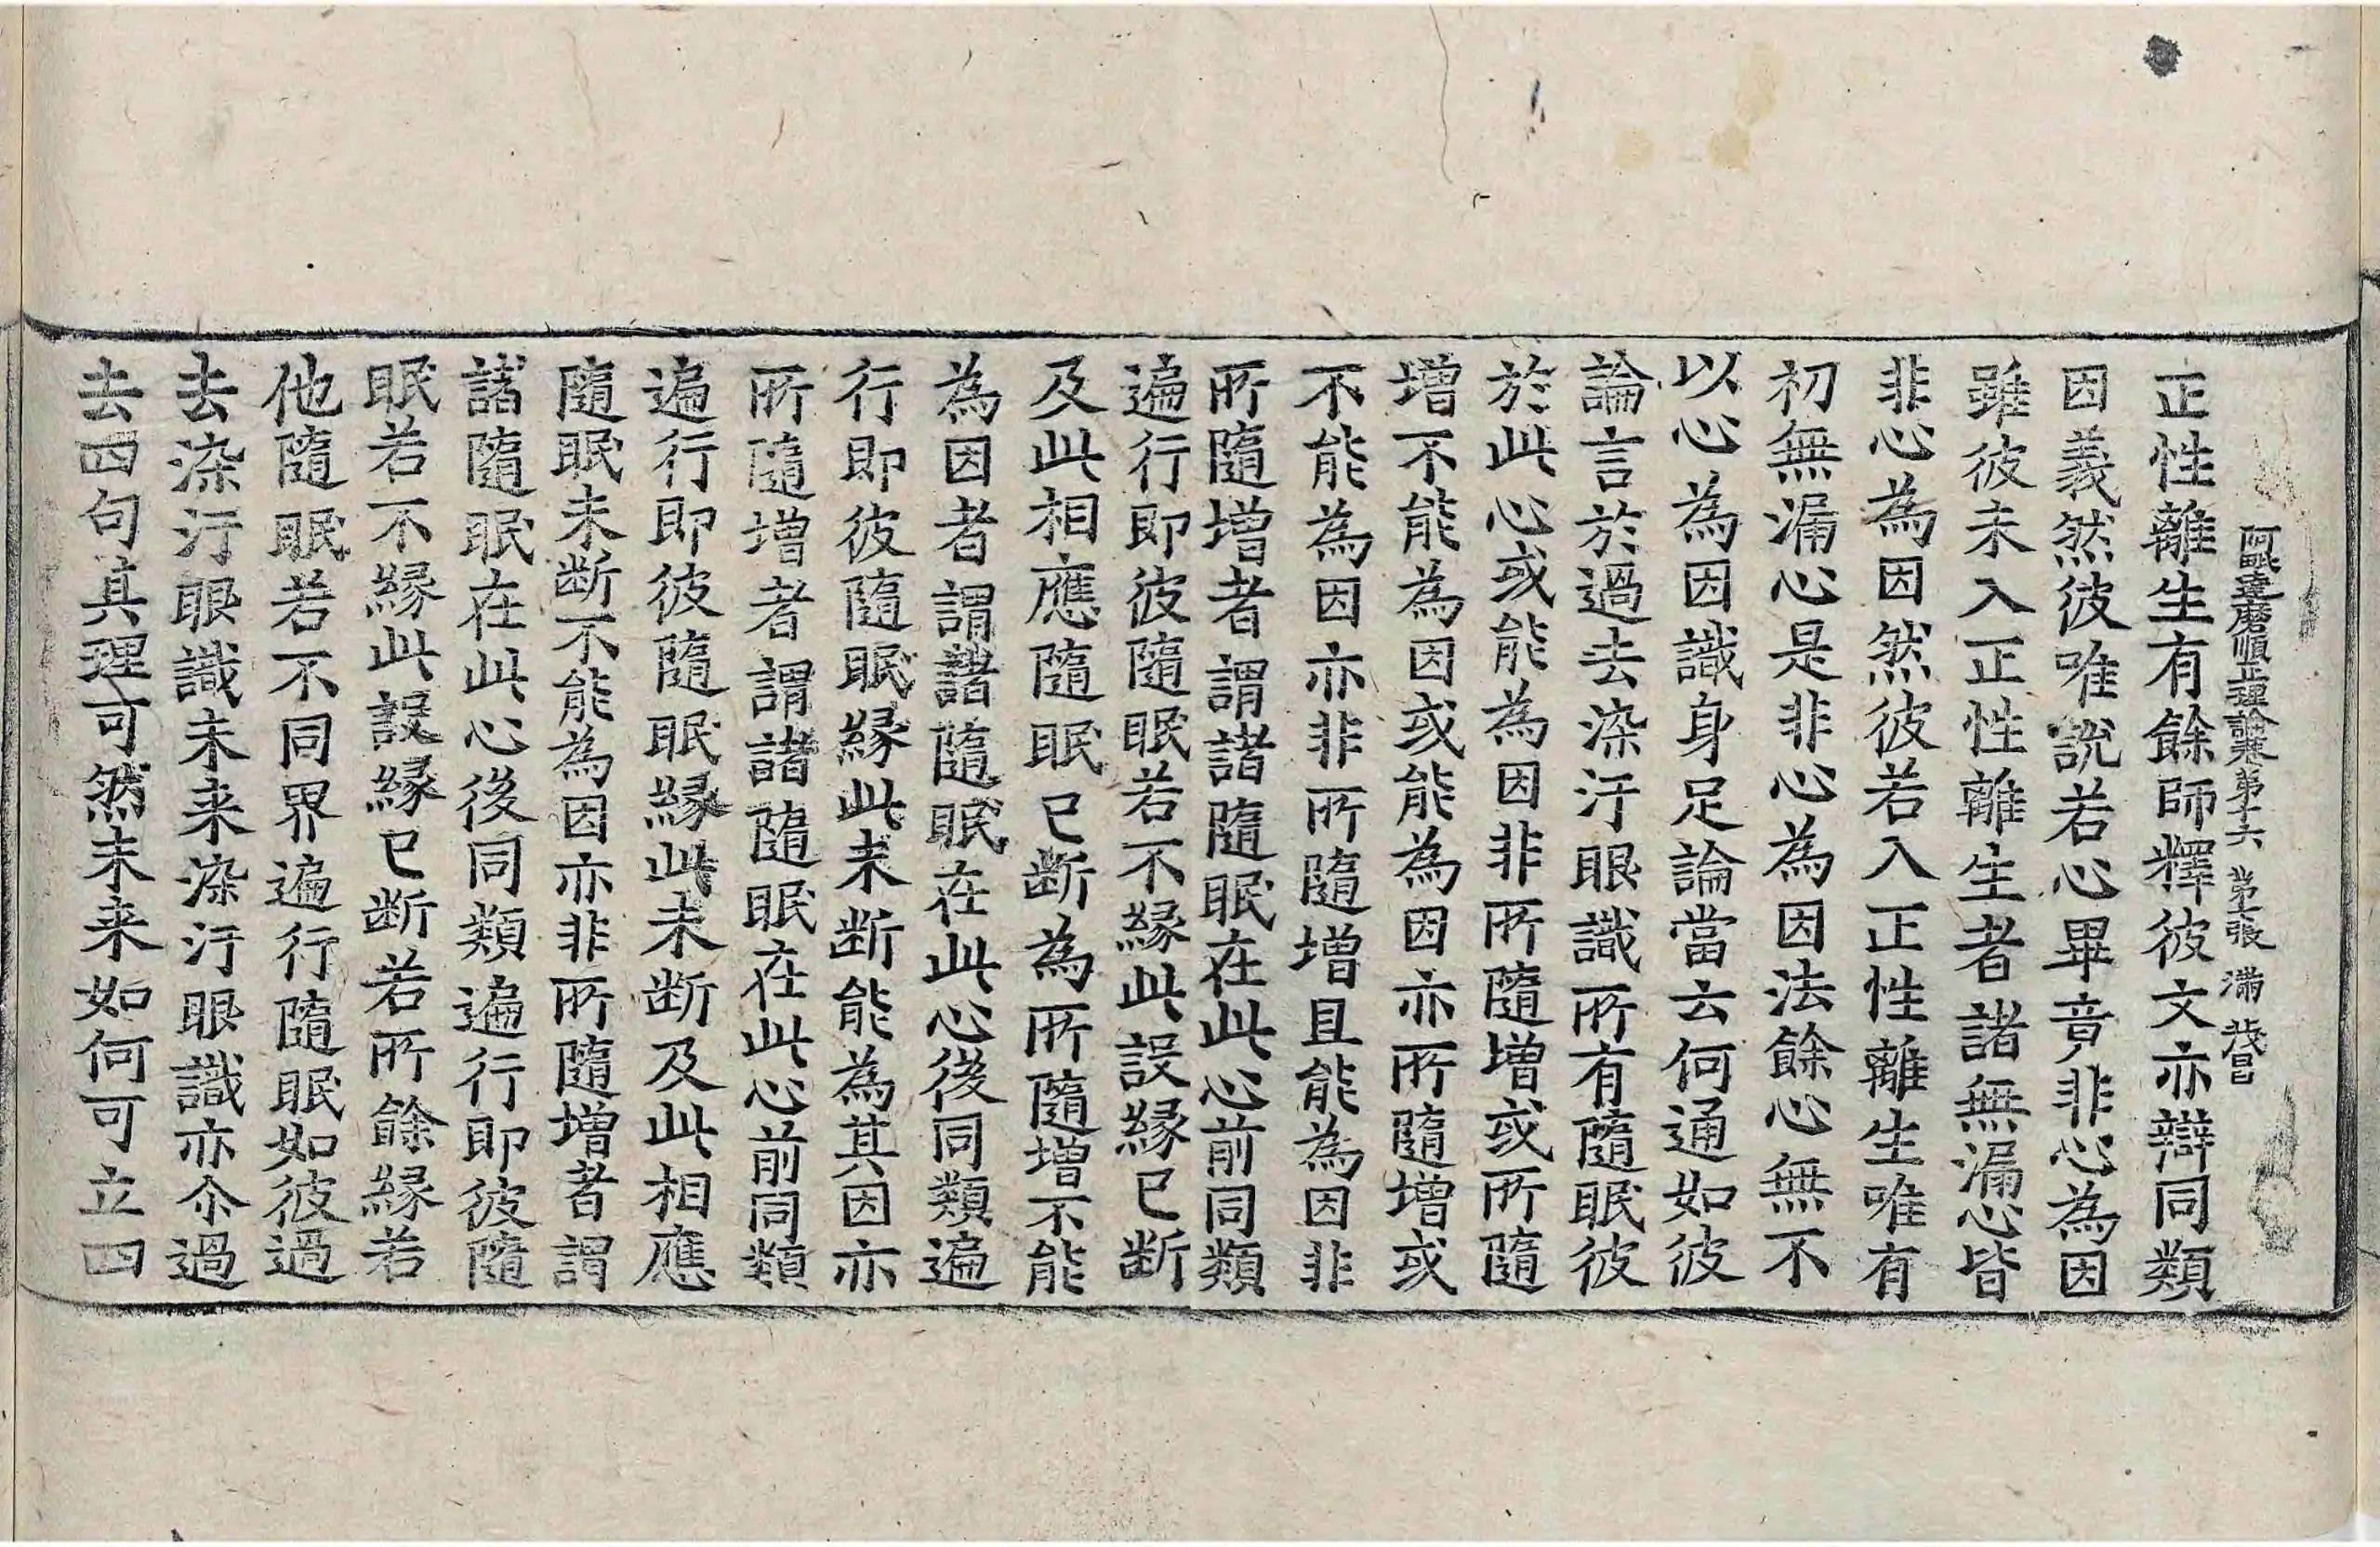 阿毗達磨順正理論卷第十六 第十張 滿 茂昌
正性離生有餘師釋彼文亦辯同類
因義然彼唯說若心畢竟非心為因
雖彼未入正性離生者諸無漏心皆
非心為因然彼若入正性離生唯有
初無漏心是非心為因法餘心無不
以心為因識身足論當云何通如彼
論言於過去染汙眼識所有隨眠彼
於此心或能為因非所隨增或所隨
增不能為因或能為因亦所隨增或
不能為因亦非所隨增且能為因非
所隨增者謂諸隨眠在此心前同類
遍行即彼隨眠若不緣此設緣已斷
及此相應隨眠已斷為所隨增不能
為因者謂諸隨眠在此心後同類遍
行即彼隨眠緣此未斷能為其因亦
所隨增者謂諸隨眠在此心前同類
遍行即彼隨眠緣此未斷及此相應
隨眠未斷不能為因亦非所隨增者謂
諸隨眠在此心後同類遍行即彼隨
眠若不緣此設緣已斷若所餘緣若
他隨眠若不同界遍行隨眠如彼過
去染汙眼識未来染汙眼識亦尒過
去四句其理可然未来如何可立四